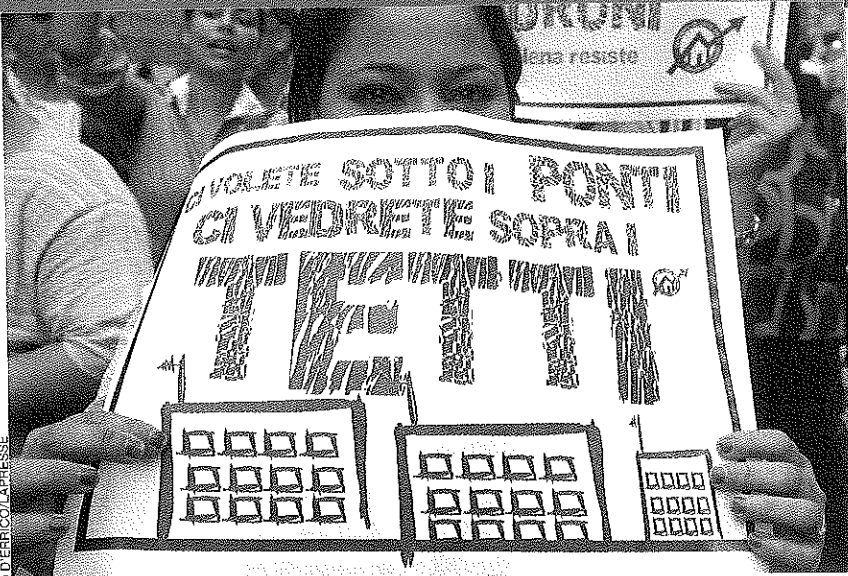 resiste
CI VOLETE SOTTO I PONTI
CI VEDRETE SOPRA I
TETTI
D'ERRICO/LAPRESSE